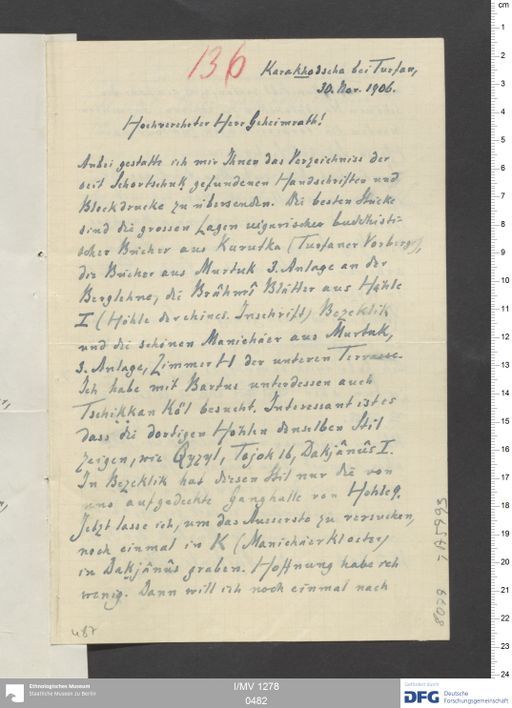 136
Karakhodscha bei Turfan,
30. Nov. 1906.
Hochverehrter Herr Geheimrath!
Anbei gestatte ich mir Ihnen das Verzeichniss der
seit Schortschuk gefundenen Handschriften und
Blockdrucke zu übersenden. Die besten Stücke
sind die grossen Lagen uigurischer buddhisti-
scher Bücher aus Kurutka (Turfaner Vorberge),
die Bücher aus Murtuk 3. Anlage an der
Berglehne, die Brâhmî Blätter aus Höhle
I (Höhle der chines. Inschrift) Bezeklik
und die schönen Manichäer aus Murtuk,
3. Anlage, Zimmer H der unteren Terrasse.
Ich habe mit Bartus unterdessen auch
Tschikkan Köl besucht. Interessant ist es
dass die dortigen Höhlen denselben Stil
zeigen, wie Qyzyl, Tojok 16, Dakjânûs I.
In Bezeklik hat diesen Stil nur die von
uns aufgedeckte Ganghalle von Höhle 9.
Jetzt lasse ich, um das Ausserste zu versuchen,
noch einmal in K (Manichäer Kloster)
in Dakjânûs graben. Hoffnung habe ich
wenig. Dann will ich noch einmal nach
487
8079
TA5993
Ethnologisches Museum
Staatliche Museen zu Berlin
I/MV 1278
0482
Gefördert durch
DFG Deutsche
Forschungsgemeinschaft
cm
1
2
3
4
5
6
7
8
9
10
11
12
13
14
15
16
17
18
19
20
21
22
23
24